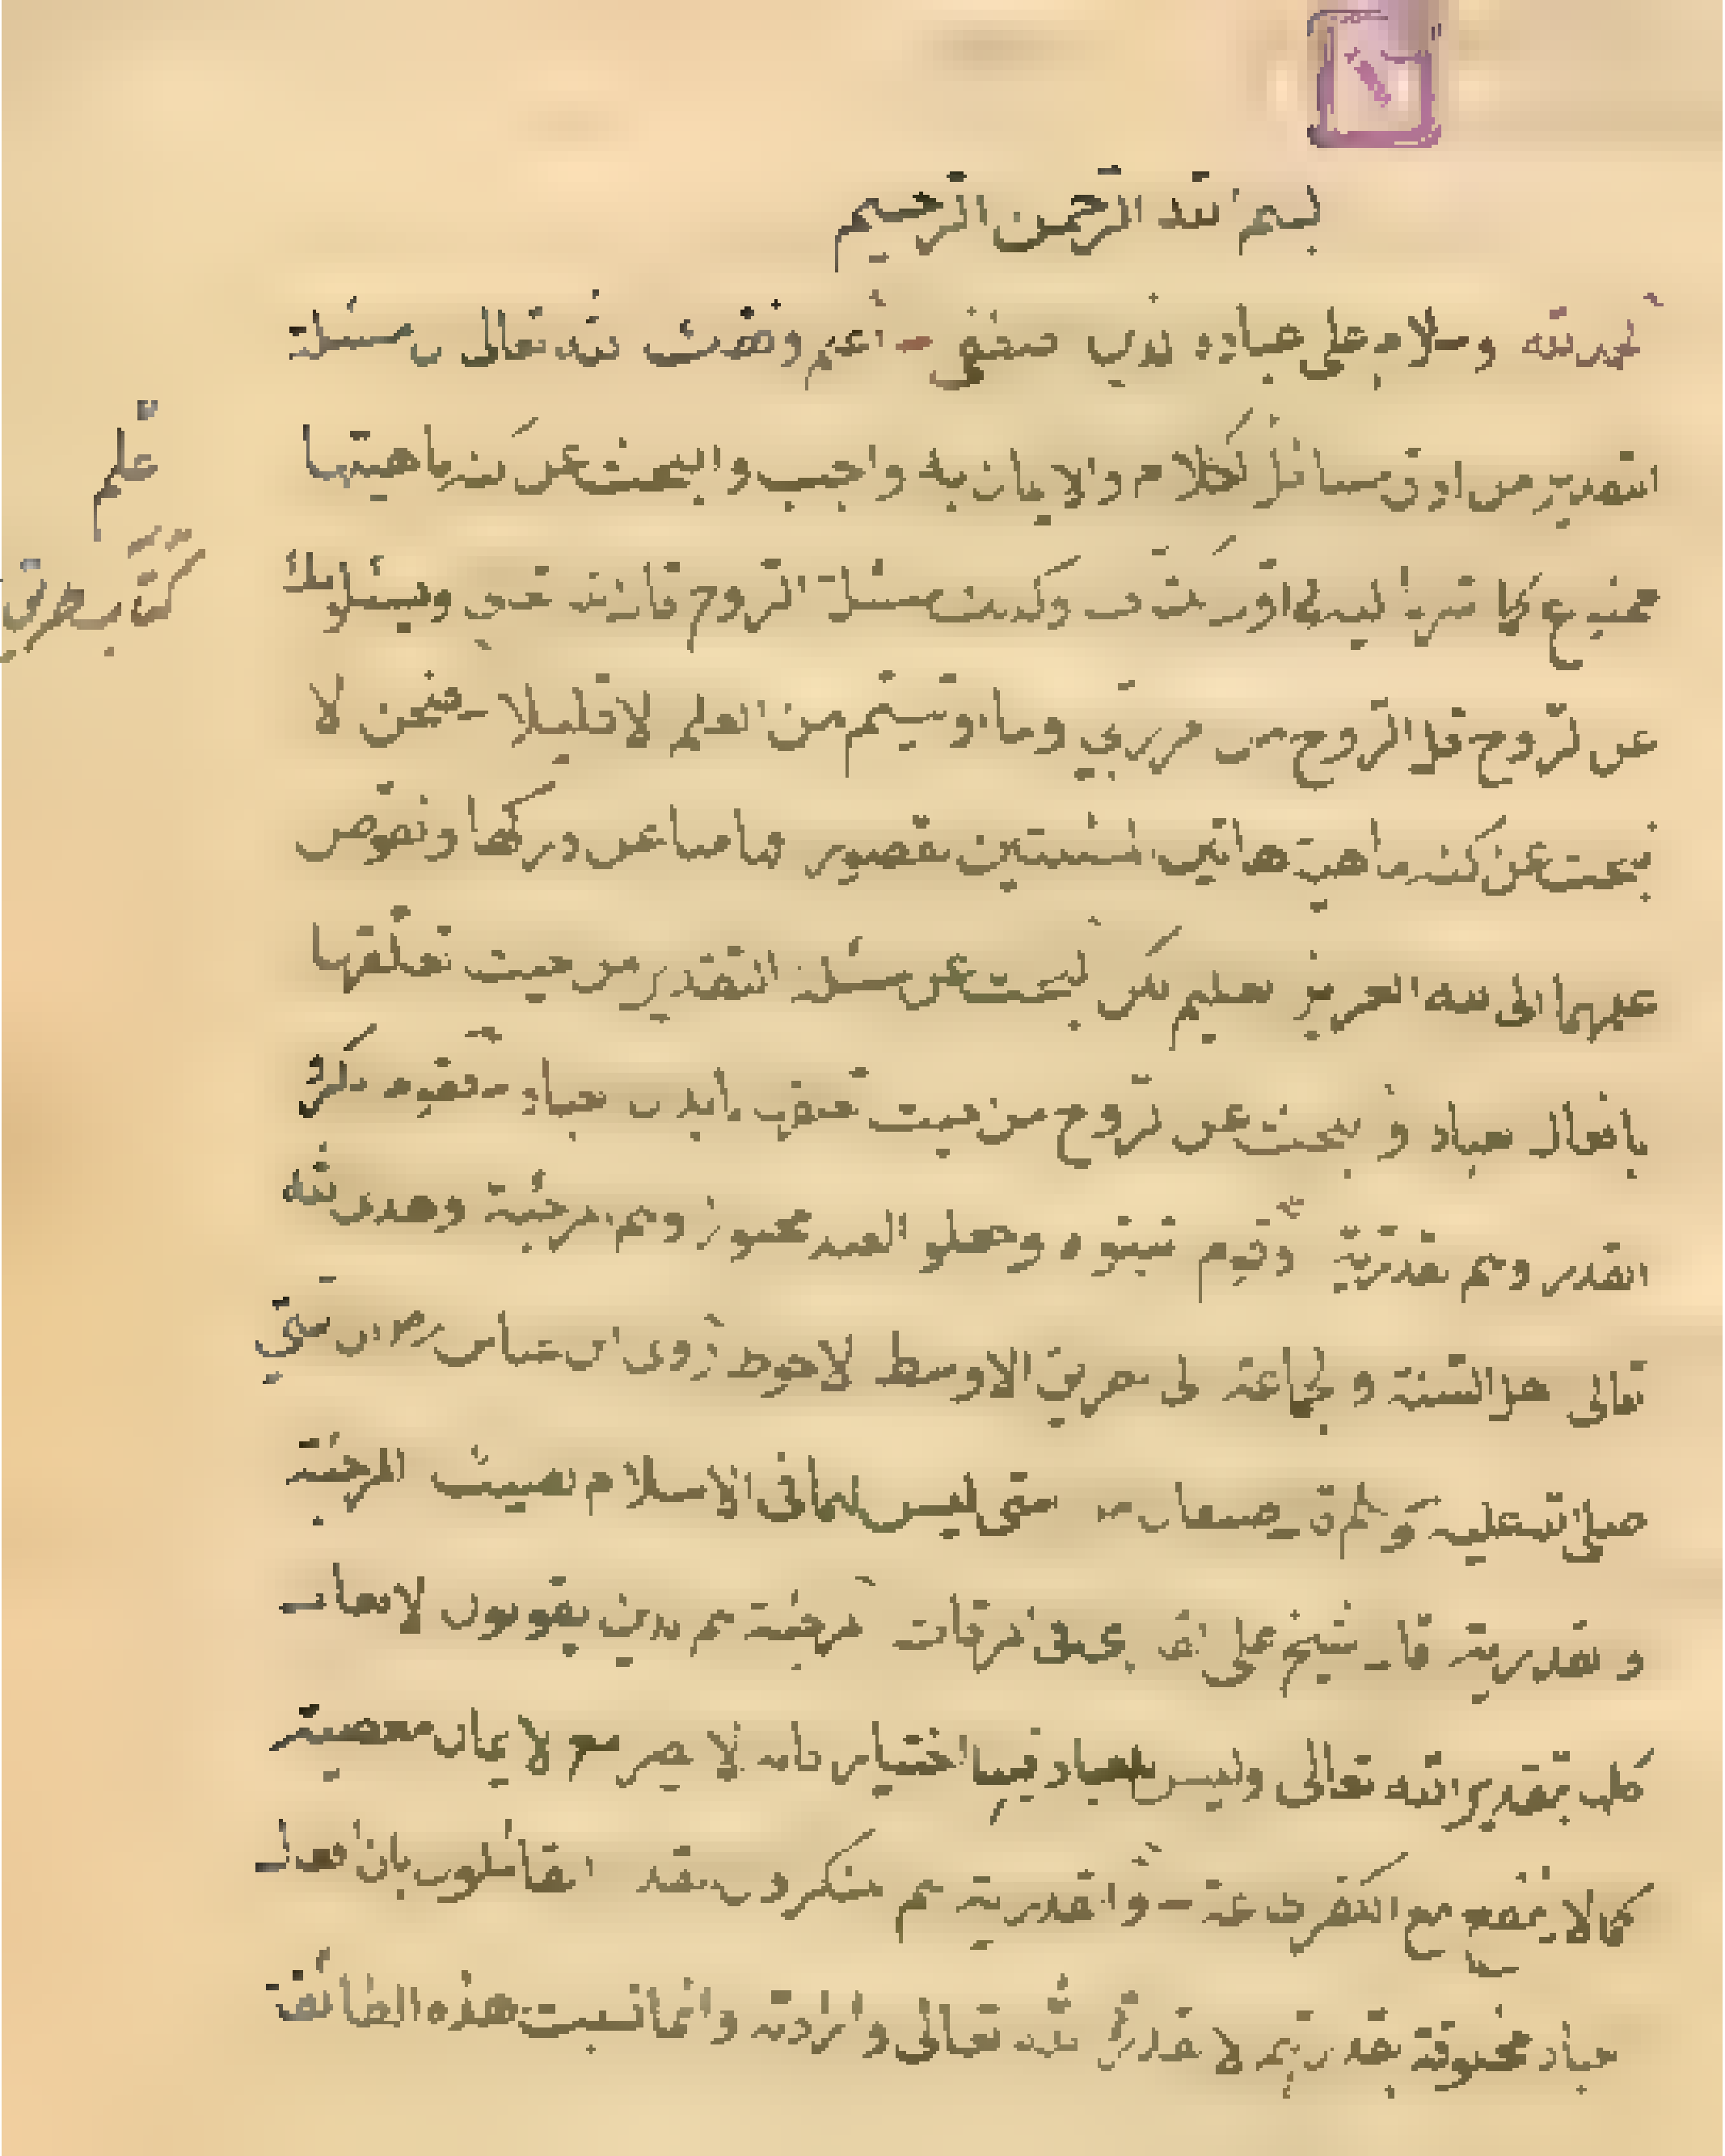 بسم الله الرحمن الرحيم
الحمد لله وسلام على عباده الذين اصطفى - اعلم وفقك الله تعالى ان مسئلة
التقدير من ادق مسائل الكلام والايمان به واجب والبحث عن كنه ماهيتها
ممنوع كما وكذلك مسئلة الروح قال الله تعالى ويسئلونك
عن الروح قل الروح من امر ربي وما اوتيتم من العلم الا قليلا - فنحن لا
نبحث عن كنه ماهية هاتين المسئلتين لقصور افهامنا عن دركها ونفوض
علمهما الى الله العزيز العليم بل نبحث عن مسئلة التقدير من حيث تعلقها
بافعال العباد و نبحث عن الروح من حيث تعلقها بابدان العباد - فقوم انكروا
القدر وهم القدرية وقوم اثبتوه وجعلوا العبد مجبورا وهم المرجئة وهدى الله
تعالى اهل السنة و الجماعة الى الطريق الاوسط الاحوط روى ابن عباس رض ان النبي
صلى الله عليه وسلم قال صنفان من امتي ليس لهما في الاسلام نصيب المرجئة
و القدرية قال الشيخ على القاري في المرقات المرجئة هم الذين يقولون الافعال
كلها بتقدير الله تعالى وليس للعباد فيها اختيار وانه لا يضر مع الايمان معصية
كما لا ينفع مع الكفر طاعة - والقدرية هم المنكرون للقدر القائلون بان افعال
العباد مخلوقة بقدرتهم لا بقدرة الله تعالى وارادته وانما نسبت هذه الطائفة
علم
كتاب